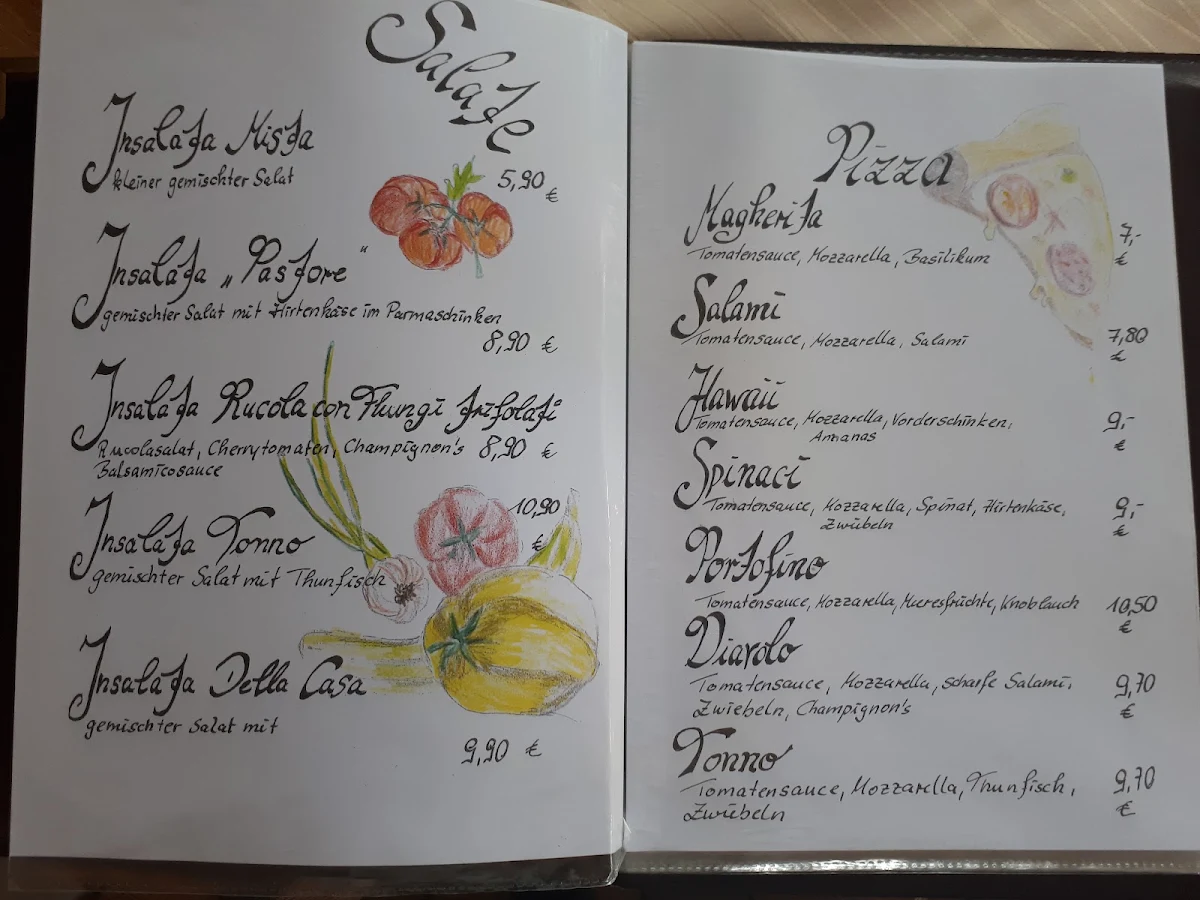 Salate
Insalata Mista
kleiner gemischter Salat
5,90 €
Insalata „Pastore"
gemischter Salat mit Hirtenkäse im Parmaschinken
8,90 €
Insalata Rucola con Fhungi Trifolati
Rucolasalat, Cherrytomaten, Champignon's 8,90 €
Balsamicosauce
10,90 €
Insalata Tonno
gemischter Salat mit Thunfisch
Insalata Della Casa
gemischter Salat mit
9,90 €
Pizza
Magherita
7,- €
Tomatensauce, Mozzarella, Basilikum
Salami
7,80 €
Tomatensauce, Mozzarella, Salami
Hawaii
Tomatensauce, Mozzarella, Vorderschinken, 9,- €
Annanas
Spinaci
Tomatensauce, Mozzarella, Spinat, Hirtenkäse, 9,- €
Zwübeln
Portofino
Tomatensauce, Mozzarella, Meeresfrüchte, Knoblauch 10,50 €
Diavolo
Tomatensauce, Mozzarella, scharfe Salami, 9,70 €
Zwiebeln, Champignon's
Tonno
Tomatensauce, Mozzarella, Thunfisch, 9,70 €
Zwübeln